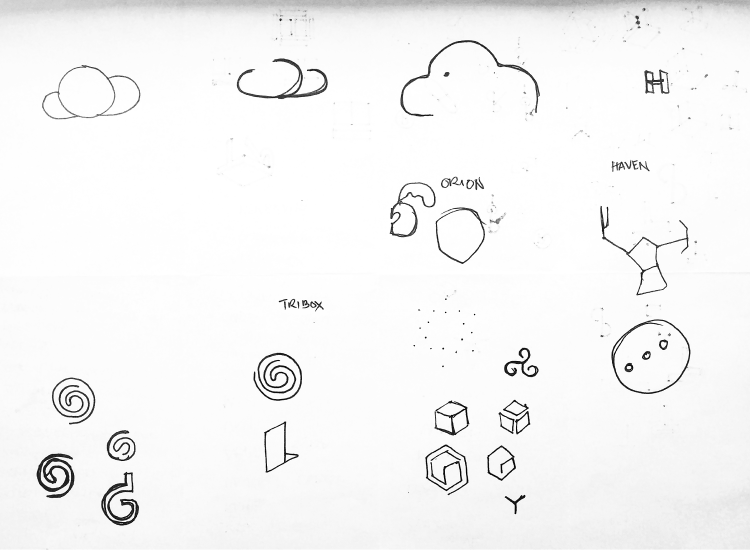 H
ORION
HAVEN
TRIBOX
Y